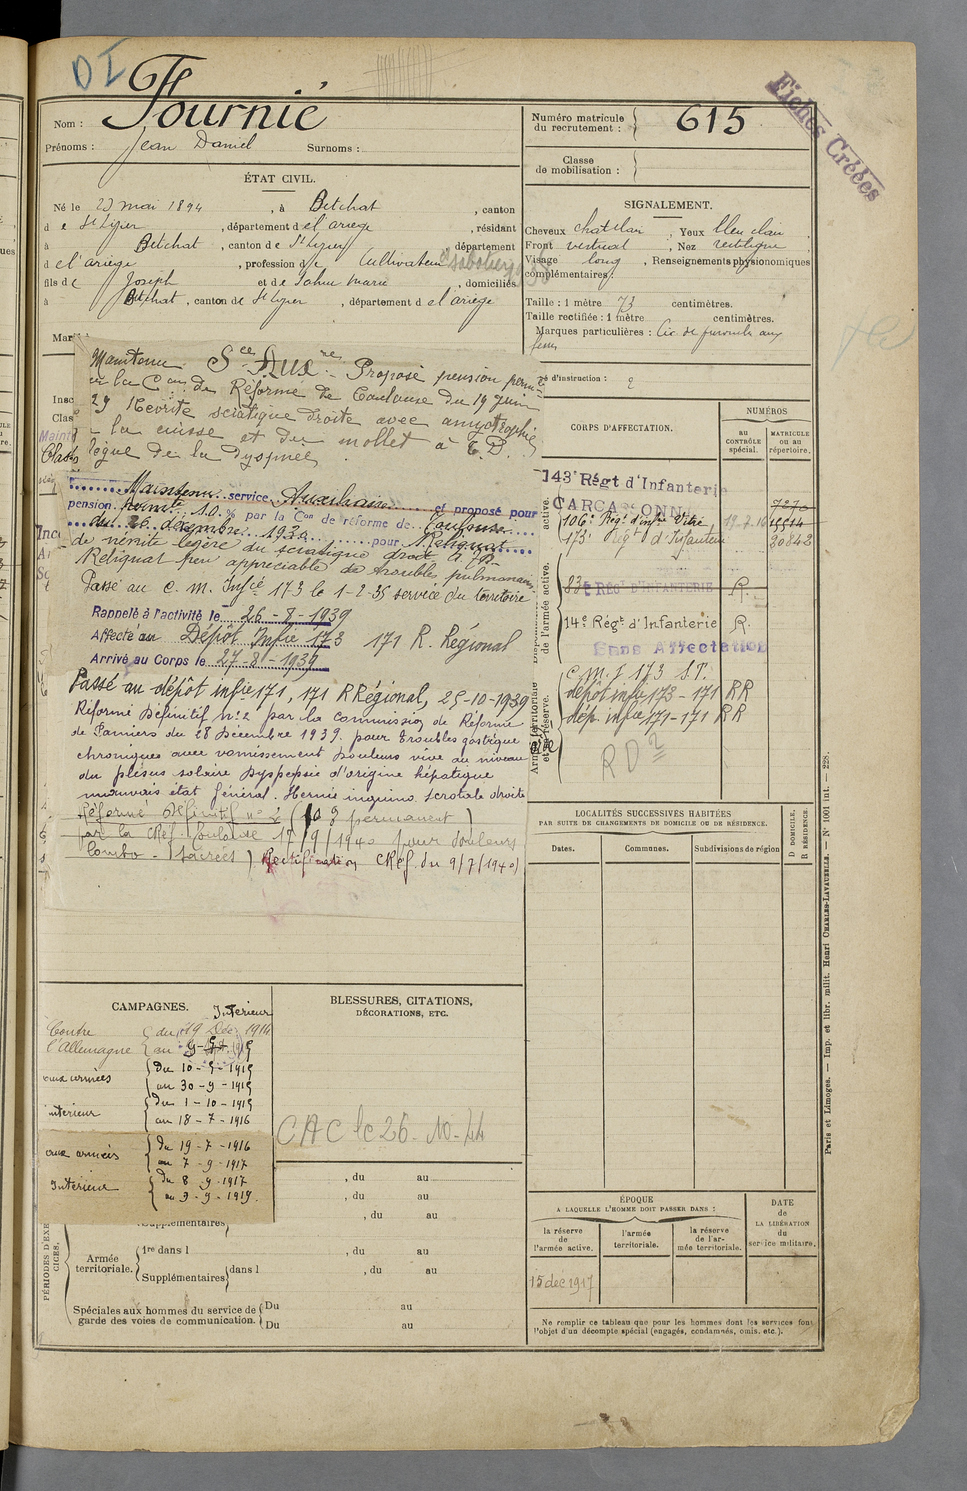 DI
Fournié
Nom :
Prénoms : Jean Daniel Surnoms :
Numéro matricule du recrutement : 615
Classe de mobilisation :
Fiches Créées
ÉTAT CIVIL.
Né le 23 mai 1894, à Betchat, canton
de St Lizier, département de l'ariège, résidant
à Betchat, canton de St Lizier, département
de l'ariège, profession de Cultivateur
fils de Joseph et de Sahuc Marie, domiciliés
à Betchat, canton de St Lizier, département de l'ariège
SIGNALEMENT.
Cheveux chatclair, Yeux bleu clair,
Front vertical, Nez rectiligne,
Visage long, Renseignements physionomiques
complémentaires :
Taille : 1 mètre 73 centimètres.
Taille rectifiée : 1 mètre centimètres.
Marques particulières : Cic de furoncle aux
fesses
é d'instruction : 2
Mar
Maintenu Sce Aux re Proposé pension perm
la Con de Réforme de Toulouse du 19 Juin
29 Névrite sciatique droite avec amyotrophie
la cuisse et du mollet à
de la Dyspnée
Maintenu service Auxiliaire et proposé pour
pension 10 % par la Con de réforme de Toulouse
du 26 décembre 1930 pour Reliquat
de névrite légère du sciatique droit
Reliquat peu appréciable de trouble pulmonaire
Passé au C. M. Infie 173 le 1-2-35 service du territoire
Rappelé à l'activité le 26-8-1939
Affecté au Dépôt Infie 173 171 R. Régional
Arrivé au Corps le 27-8-1939
Passé au dépôt infie 171, 171 R Régional, 25-10-1939
Réformé Définitif n° 2 par la commission de Réforme
de Pamiers du 28 Décembre 1939 pour troubles gastrique
chroniques avec vomissement douleurs vive au niveau
du plésus solaire Dyspepsie d'origine hépatique
mauvais état Général. Hernie inguino scrotale droite
Réformé Définitif n° 2 permanent
par la CRéf Toulouse 17/9/1940 pour douleurs
lombo - sacrées) Rectification CRéf. du 9/7/1940)
CORPS D'AFFECTATION.
NUMÉROS
AU CONTRÔLE spécial.
MATRICULE OU AU répertoire.
143e Régt d'Infanterie
CARCASSONNE 7270
106e Régt d'infie 19-7-16
173e Régt d'Infanterie 20842
83e RÉGT D'INFANTERIE R.
14e Régt d'Infanterie R.
Sans Affectation
C. M. I 173 S.T.
dépôt infie 173 - 171 RR
dép. infie 171 - 171 RR
RD2
LOCALITÉS SUCCESSIVES HABITÉES
PAR SUITE DE CHANGEMENTS DE DOMICILE OU DE RÉSIDENCE.
Dates.
Communes.
Subdivisions de région
D DOMICILE, R RÉSIDENCE.
CAMPAGNES.
Intérieur
Contre du 19 Déc 1914
l'Allemagne au 9-5-1915
aux armées Du 10-5-1915
au 30-9-1915
intérieur Du 1-10-1915
au 18-7-1916
aux armées Du 19-7-1916
au 7-9-1917
Intérieur Du 8-9-1917
au 3-9-1919.
BLESSURES, CITATIONS,
DÉCORATIONS, ETC.
CAC le 26-10-44
, du au
, du au
Supplémentaires , du au
PÉRIODES D'EXERCICES.
Armée territoriale.
1re dans l , du au
Supplémentaires dans l , du au
Spéciales aux hommes du service de garde des voies de communication.
Du au
Du au
ÉPOQUE
A LAQUELLE L'HOMME DOIT PASSER DANS :
la réserve de l'armée active.
l'armée territoriale.
la réserve de l'armée territoriale.
DATE de LA LIBÉRATION du service militaire.
15 dec 1917
Ne remplir ce tableau que pour les hommes dont les services font
l'objet d'un décompte spécial (engagés, condamnés, omis, etc.).
Paris et Limoges. — Imp. et libr. milit. Henri CHARLES-LAVAUZELLE. — N° 1001 int. — 228.